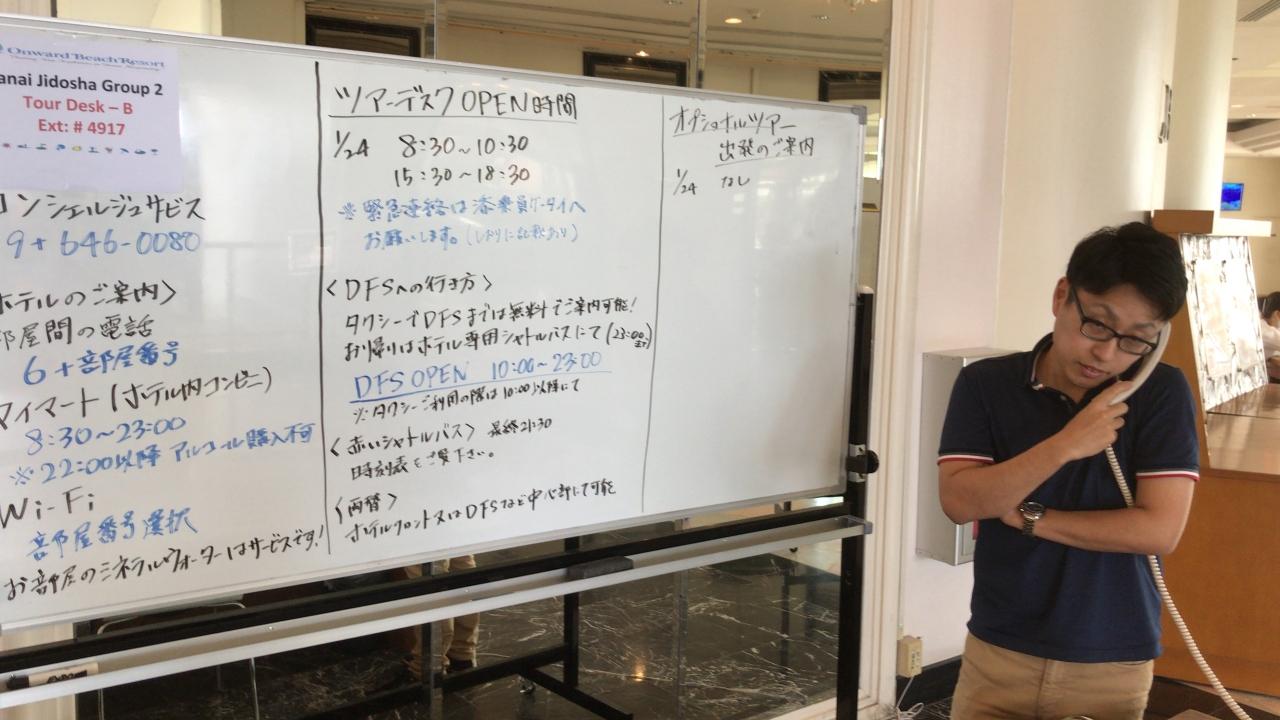 Onward Beach Resort
anai Jidosha Group 2
Tour Desk – B
Ext: # 4917
コンシェルジュサービス
9+646-0080
ホテルのご案内〉
部屋間の電話
6+部屋番号
マイマート(ホテル内コンビニ)
8:30~23:00
※22:00以降 アルコール購入不可
Wi-Fi
部屋番号選択
お部屋のミネラルウォーターはサービスです!
ツアーデスクOPEN時間
1/24 8:30~10:30
15:30~18:30
※緊急連絡は添乗員ケータイへ
お願いします。(しおりに記載あり)
〈DFSへの行き方〉
タクシーでDFSまでは無料でご案内可能!
お帰りはホテル専用シャトルバスにて(23:00まで)
DFS OPEN 10:00~23:00
※タクシーご利用の際は10:00以降にて
〈赤いシャトルバス〉 最終21:30
時刻表をご覧下さい。
〈両替〉
ホテルフロント又はDFSなど中心部にて可能
オプショナルツアー
出発のご案内
1/24 なし